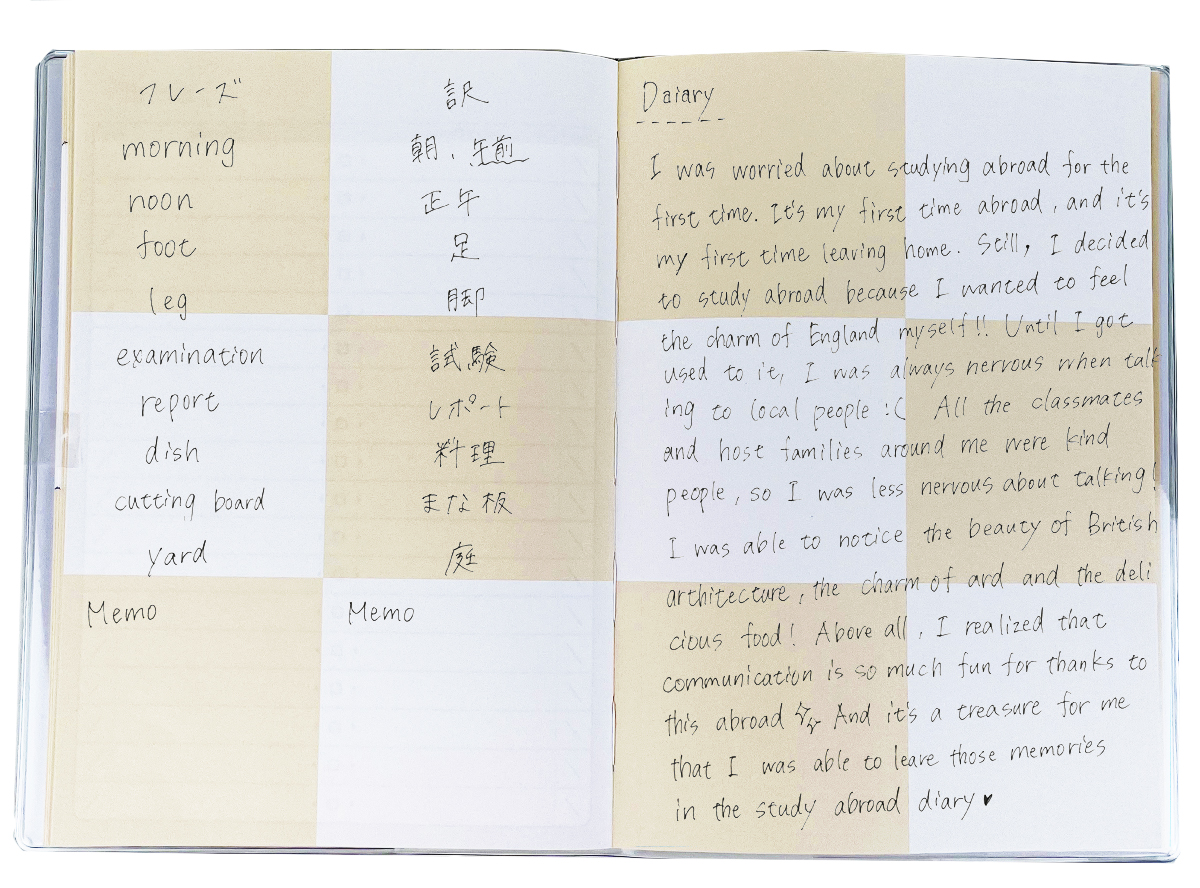 フレーズ 訳
morning 朝、午前
noon 正午
foot 足
leg 脚
examination 試験
report レポート
dish 料理
cutting board まな板
yard 庭
Memo Memo
Daiary
I was worried about studying abroad for the
first time. It's my first time abroad, and it's
my first time leaving home. Still, I decided
to study abroad because I wanted to feel
the charm of England myself!! Until I got
used to it, I was always nervous when talk
ing to local people :( All the classmates
and host families around me were kind
people, so I was less nervous about talking!
I was able to notice the beauty of British
arthitecture, the charm of ard and the deli
cious food! Above all, I realized that
communication is so much fun for thanks to
this abroad ✨ And it's a treasure for me
that I was able to leave those memories
in the study abroad diary ♥